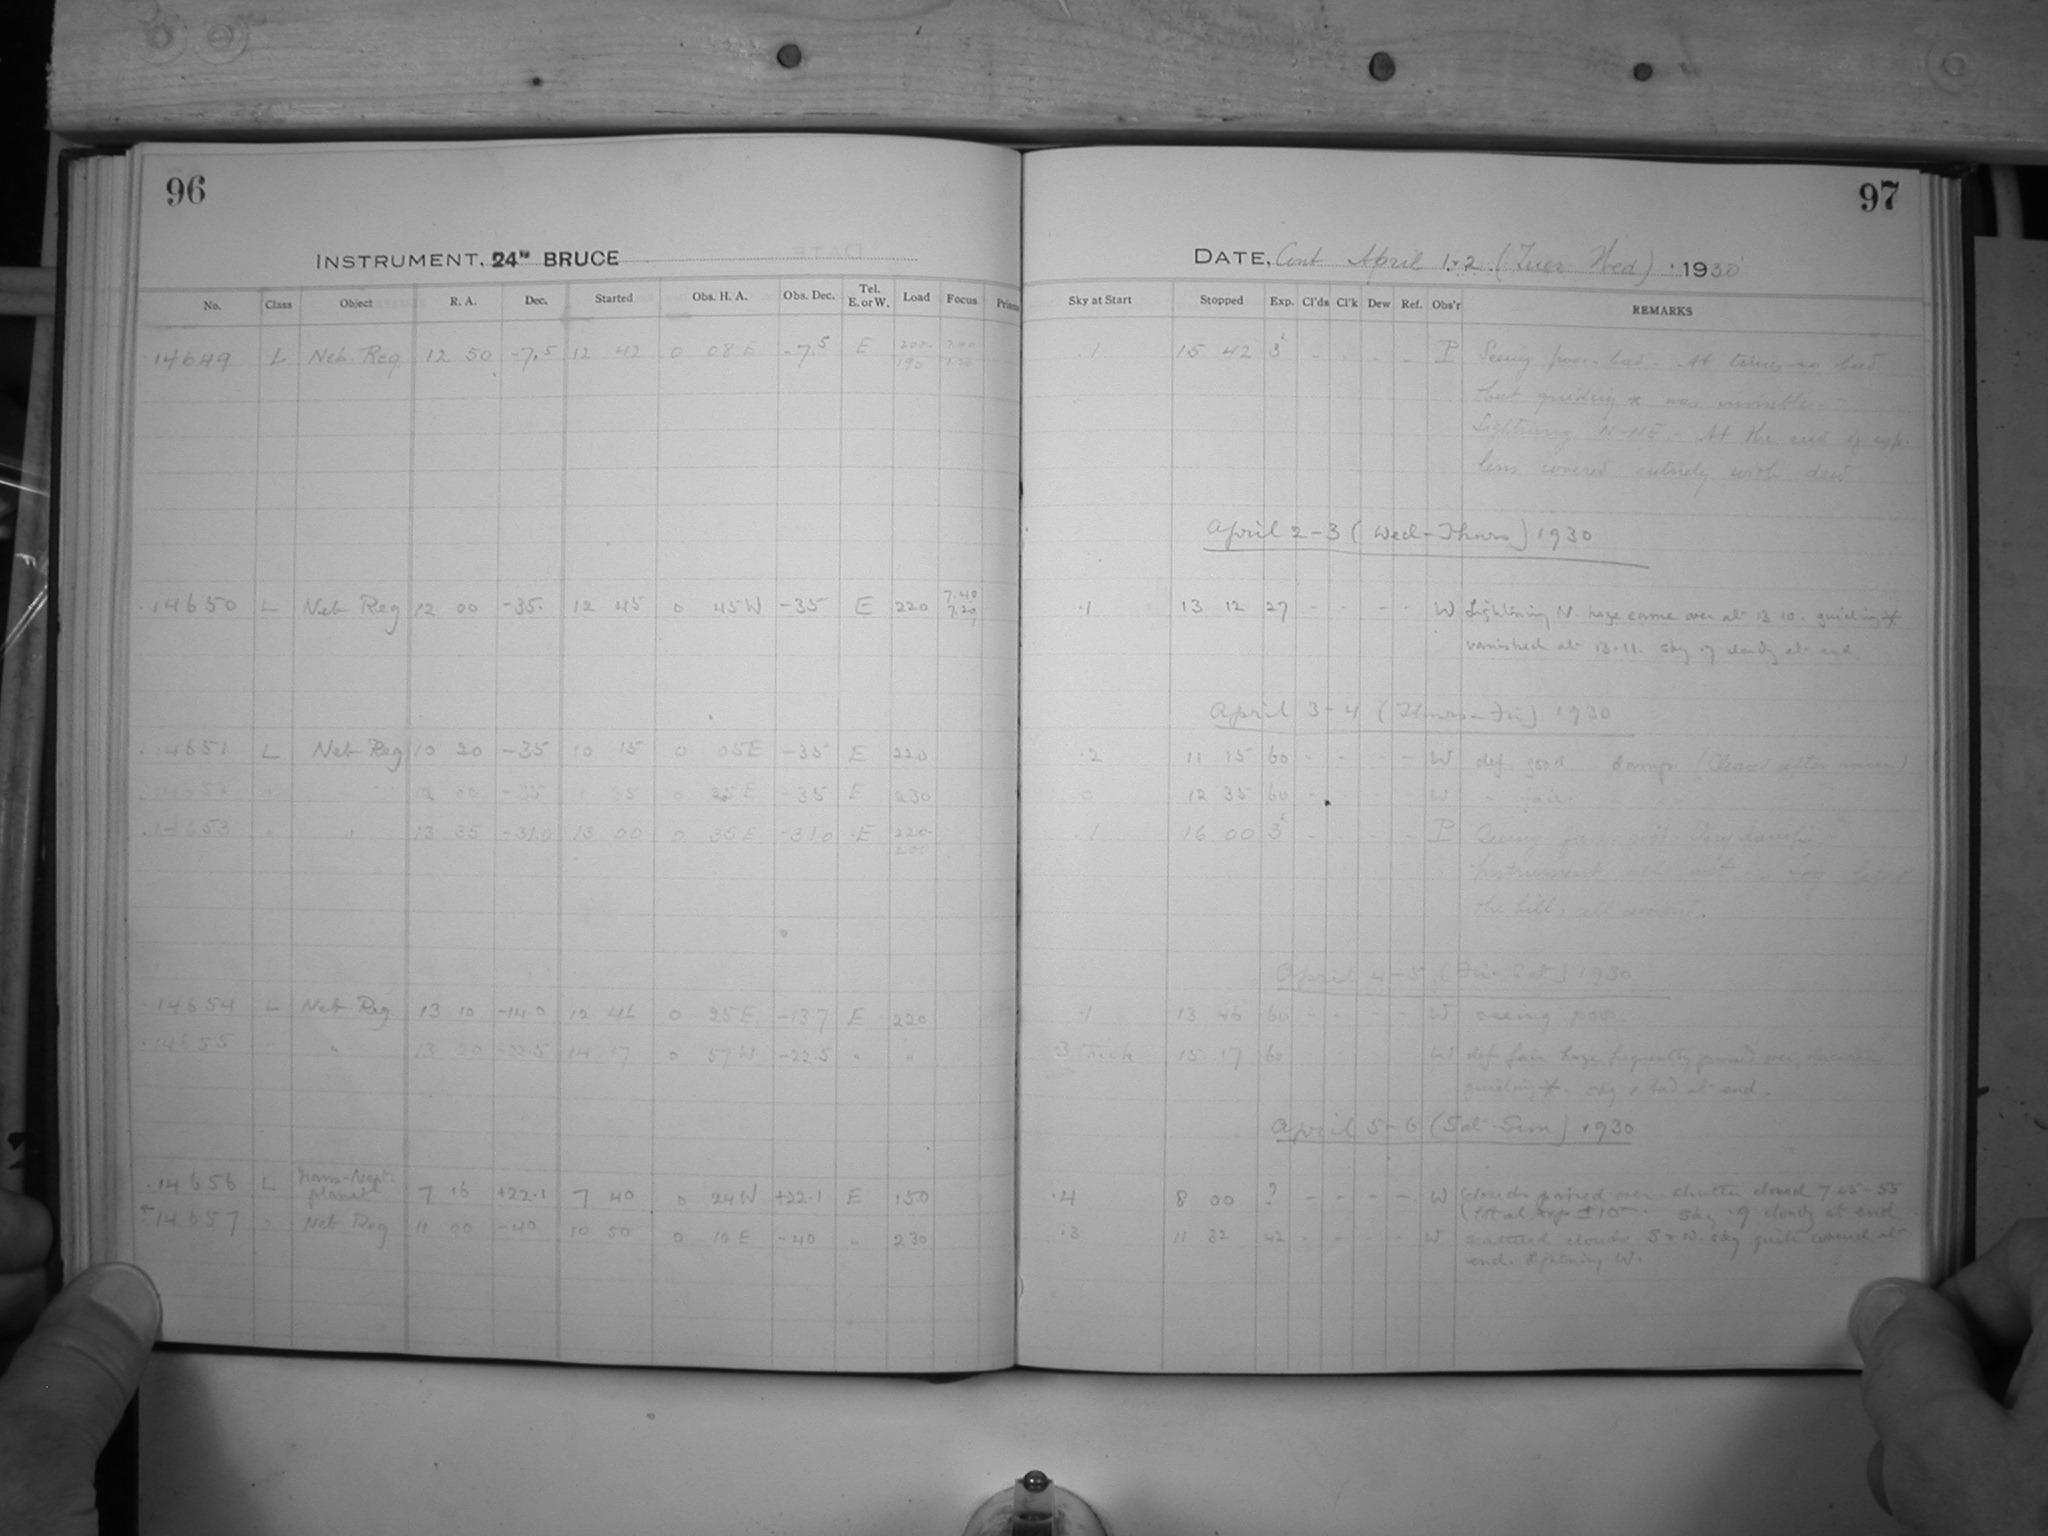 96
INSTRUMENT. 24" BRUCE
No. Class Object R. A. Dec. Started Obs. H. A. Obs. Dec. Tel. E. or W. Load Focus
14649 L Neb. Reg. 12 50 -7.5 12 42 0 08 E -7.5 E 200- 190
14650 L Neb Reg 12 00 -35. 12 45 0 45 W -35 E 220 7.40 7.20
14651 L Neb Reg 10 20 -35 10 15 0 05 E -35 E 220
14652 " 12 00 -35 11 35 0 25 E -35 E 230
14653 " " 13 35 -31.0 13 00 0 35 E -31.0 E 220- 200
14654 L Neb Reg 13 10 -14.0 12 46 0 25 E -13.7 E 220
14655 " " 13 20 -22.5 14 17 0 57 W -22.5 " "
14656 L Trans-Nept. planet 7 16 +22.1 7 40 0 24 W +22.1 E 150
14657 " Neb Reg 11 00 -40 10 50 0 10 E -40 " 230
97
DATE, Cont April 1-2 (Tues Wed) 1930
Sky at Start Stopped Exp. Cl'ds Cl'k Dew Ref. Obs'r REMARKS
.1 15 42 3h - - - - P Seeing poor, bad - At times so bad
that guiding * was invisible -
Lightning N-NE. - At the end of exp.
lens covered entirely with dew
April 2-3 (Wed-Thurs) 1930
.1 13 12 27 - - - - W Lightning N. haze came over at 13 10. guiding *
vanished at 13.11. sky .7 cloudy at end.
April 3-4 (Thurs-Fri) 1930
.2 11 15 60 - - - - W def. good damp (Cleared after
0 12 35 60 - - - - W " fair.
.1 16 00 3h - - - - P Seeing Very damp -
Instrument wet - Fog
the hill, all around.
April 4-5 (Fri-Sat) 1930
.1 13 46 60 - - - - W seeing poor.
.3 thick 15 17 60 - - - - W def. fair haze frequently passed over,
guiding *. sky bad at end.
April 5-6 (Sat-Sun) 1930
.4 8 00 ? - - - - W (clouds passed over. shutter closed 7 45-55
(total exp ± 10m. sky .9 cloudy at end.
.3 11 32 42 - - - - W scattered clouds S & W. sky quite covered at
end. lightning W.